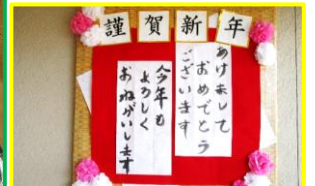 謹賀新年
あけまして
おめでとう
ございます
今年も
よろしく
おねがいします